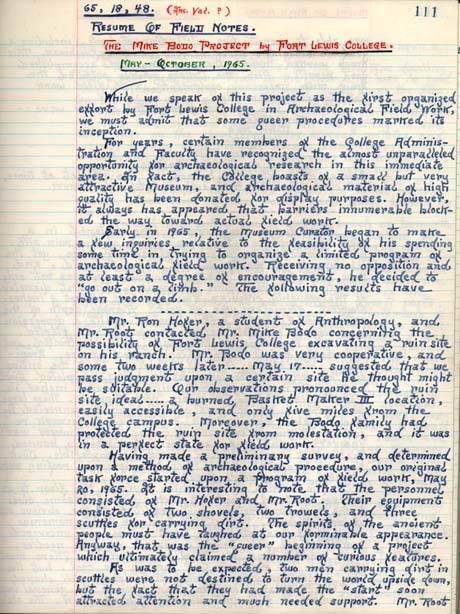 65, 18, 48. (Ans. Val. ?)
111
RESUME OF FIELD NOTES.
THE MIKE BODO PROJECT by FORT LEWIS COLLEGE.
MAY - OCTOBER, 1965.
While we speak of this project as the first organized
effort by Fort Lewis College in Archaeological Field Work,
we must admit that some queer procedures marked its
inception.
For years, certain members of the College Adminis-
tration and Faculty have recognized the almost unparalleled
opportunity for archaeological research in this immediate
area. In fact, the College boasts of a small but very
attractive Museum, and archaeological material of high
quality has been donated for display purposes. However,
it always has appeared that barriers innumerable block-
ed the way toward actual field work.
Early in 1965, the Museum Curator began to make
a few inquiries relative to the feasibility of his spending
some time in trying to organize a limited program of
archaeological field work. Receiving no opposition and
at least a degree of encouragement, he decided to
"go out on a limb." The following results have
been recorded.
Mr. Ron Hofer, a student of Anthropology, and
Mr. Root contacted Mr. Mike Bodo concerning the
possibility of Fort Lewis College excavating a ruin site
on his ranch. Mr. Bodo was very cooperative, and
some two weeks later ..... May 17 ..... suggested that we
pass judgment upon a certain site he thought might
be suitable. Our observations pronounced the ruin
site ideal .... a burned, Basket Maker III location,
easily accessible, and only five miles from the
College campus. Moreover, the Bodo family had
protected the ruin site from molestation, and it was
in a perfect state for field work.
Having made a preliminary survey, and determined
upon a method of archaeological proceedure, our original
task force started upon a program of field work, May
20, 1965. It is interesting to note that the personnel
consisted of Mr. Hofer and Mr. Root. Their equipment
consisted of two shovels, two trowels, and three
scuttles for carrying dirt. The spirits of the ancient
people must have laughed at our formidable appearance.
Anyway, that was the "queer" beginning of a project
which ultimately claimed a number of curious features.
As was to be expected, two men carrying dirt in
scuttles were not destined to turn the world upside down,
but the fact that they had made the "start" soon
attracted attention and much needed support. Mr. Root